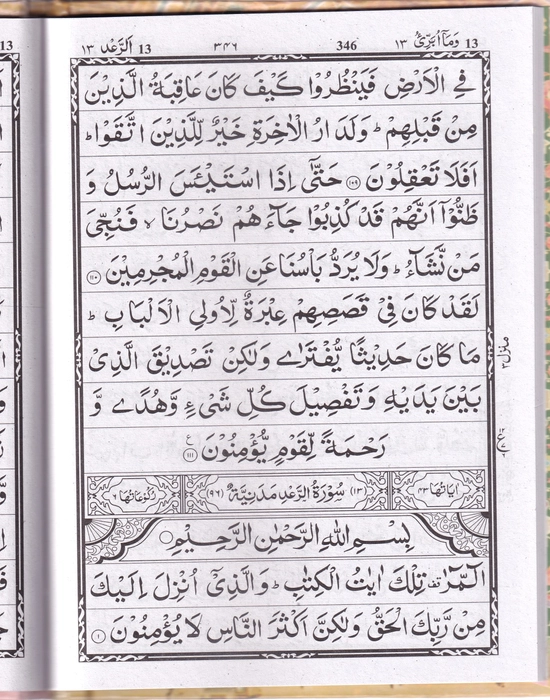 13 وَمَآ اُبَرِّئُ ١٣
346
٣٤٦
13 اَلرَّعْد ١٣
فِی الْاَرْضِ فَیَنْظُرُوْا كَیْفَ كَانَ عَاقِبَةُ الَّذِیْنَ
مِنْ قَبْلِهِمْ ؕ وَلَدَارُ الْاٰخِرَةِ خَیْرٌ لِّلَّذِیْنَ اتَّقَوْا ؕ
اَفَلَا تَعْقِلُوْنَ ۝۱۰۹ حَتّٰۤی اِذَا اسْتَیْـَٔسَ الرُّسُلُ وَ
ظَنُّوْۤا اَنَّهُمْ قَدْ كُذِبُوْا جَآءَهُمْ نَصْرُنَا ۙ فَنُجِّیَ
مَنْ نَّشَآءُ ؕ وَلَا یُرَدُّ بَاْسُنَا عَنِ الْقَوْمِ الْمُجْرِمِیْنَ ۝۱۱۰
لَقَدْ كَانَ فِیْ قَصَصِهِمْ عِبْرَةٌ لِّاُولِی الْاَلْبَابِ ؕ
مَا كَانَ حَدِیْثًا یُّفْتَرٰی وَلٰكِنْ تَصْدِیْقَ الَّذِیْ
بَیْنَ یَدَیْهِ وَتَفْصِیْلَ كُلِّ شَیْءٍ وَّهُدًی وَّ
رَحْمَةً لِّقَوْمٍ یُّؤْمِنُوْنَ ۝۱۱۱ ع
اٰیَاتُهَا ٤٣ (١٣) سُوْرَةُ الرَّعْدِ مَدَنِیَّةٌ (٩٦) رُكُوْعَاتُهَا ٦
بِسْمِ اللّٰهِ الرَّحْمٰنِ الرَّحِیْمِ ۝
الٓمّٓرٰ ۫ قف تِلْكَ اٰیٰتُ الْكِتٰبِ ؕ وَالَّذِیْۤ اُنْزِلَ اِلَیْكَ
مِنْ رَّبِّكَ الْحَقُّ وَلٰكِنَّ اَكْثَرَ النَّاسِ لَا یُؤْمِنُوْنَ ۝۱
منزل ٣
13